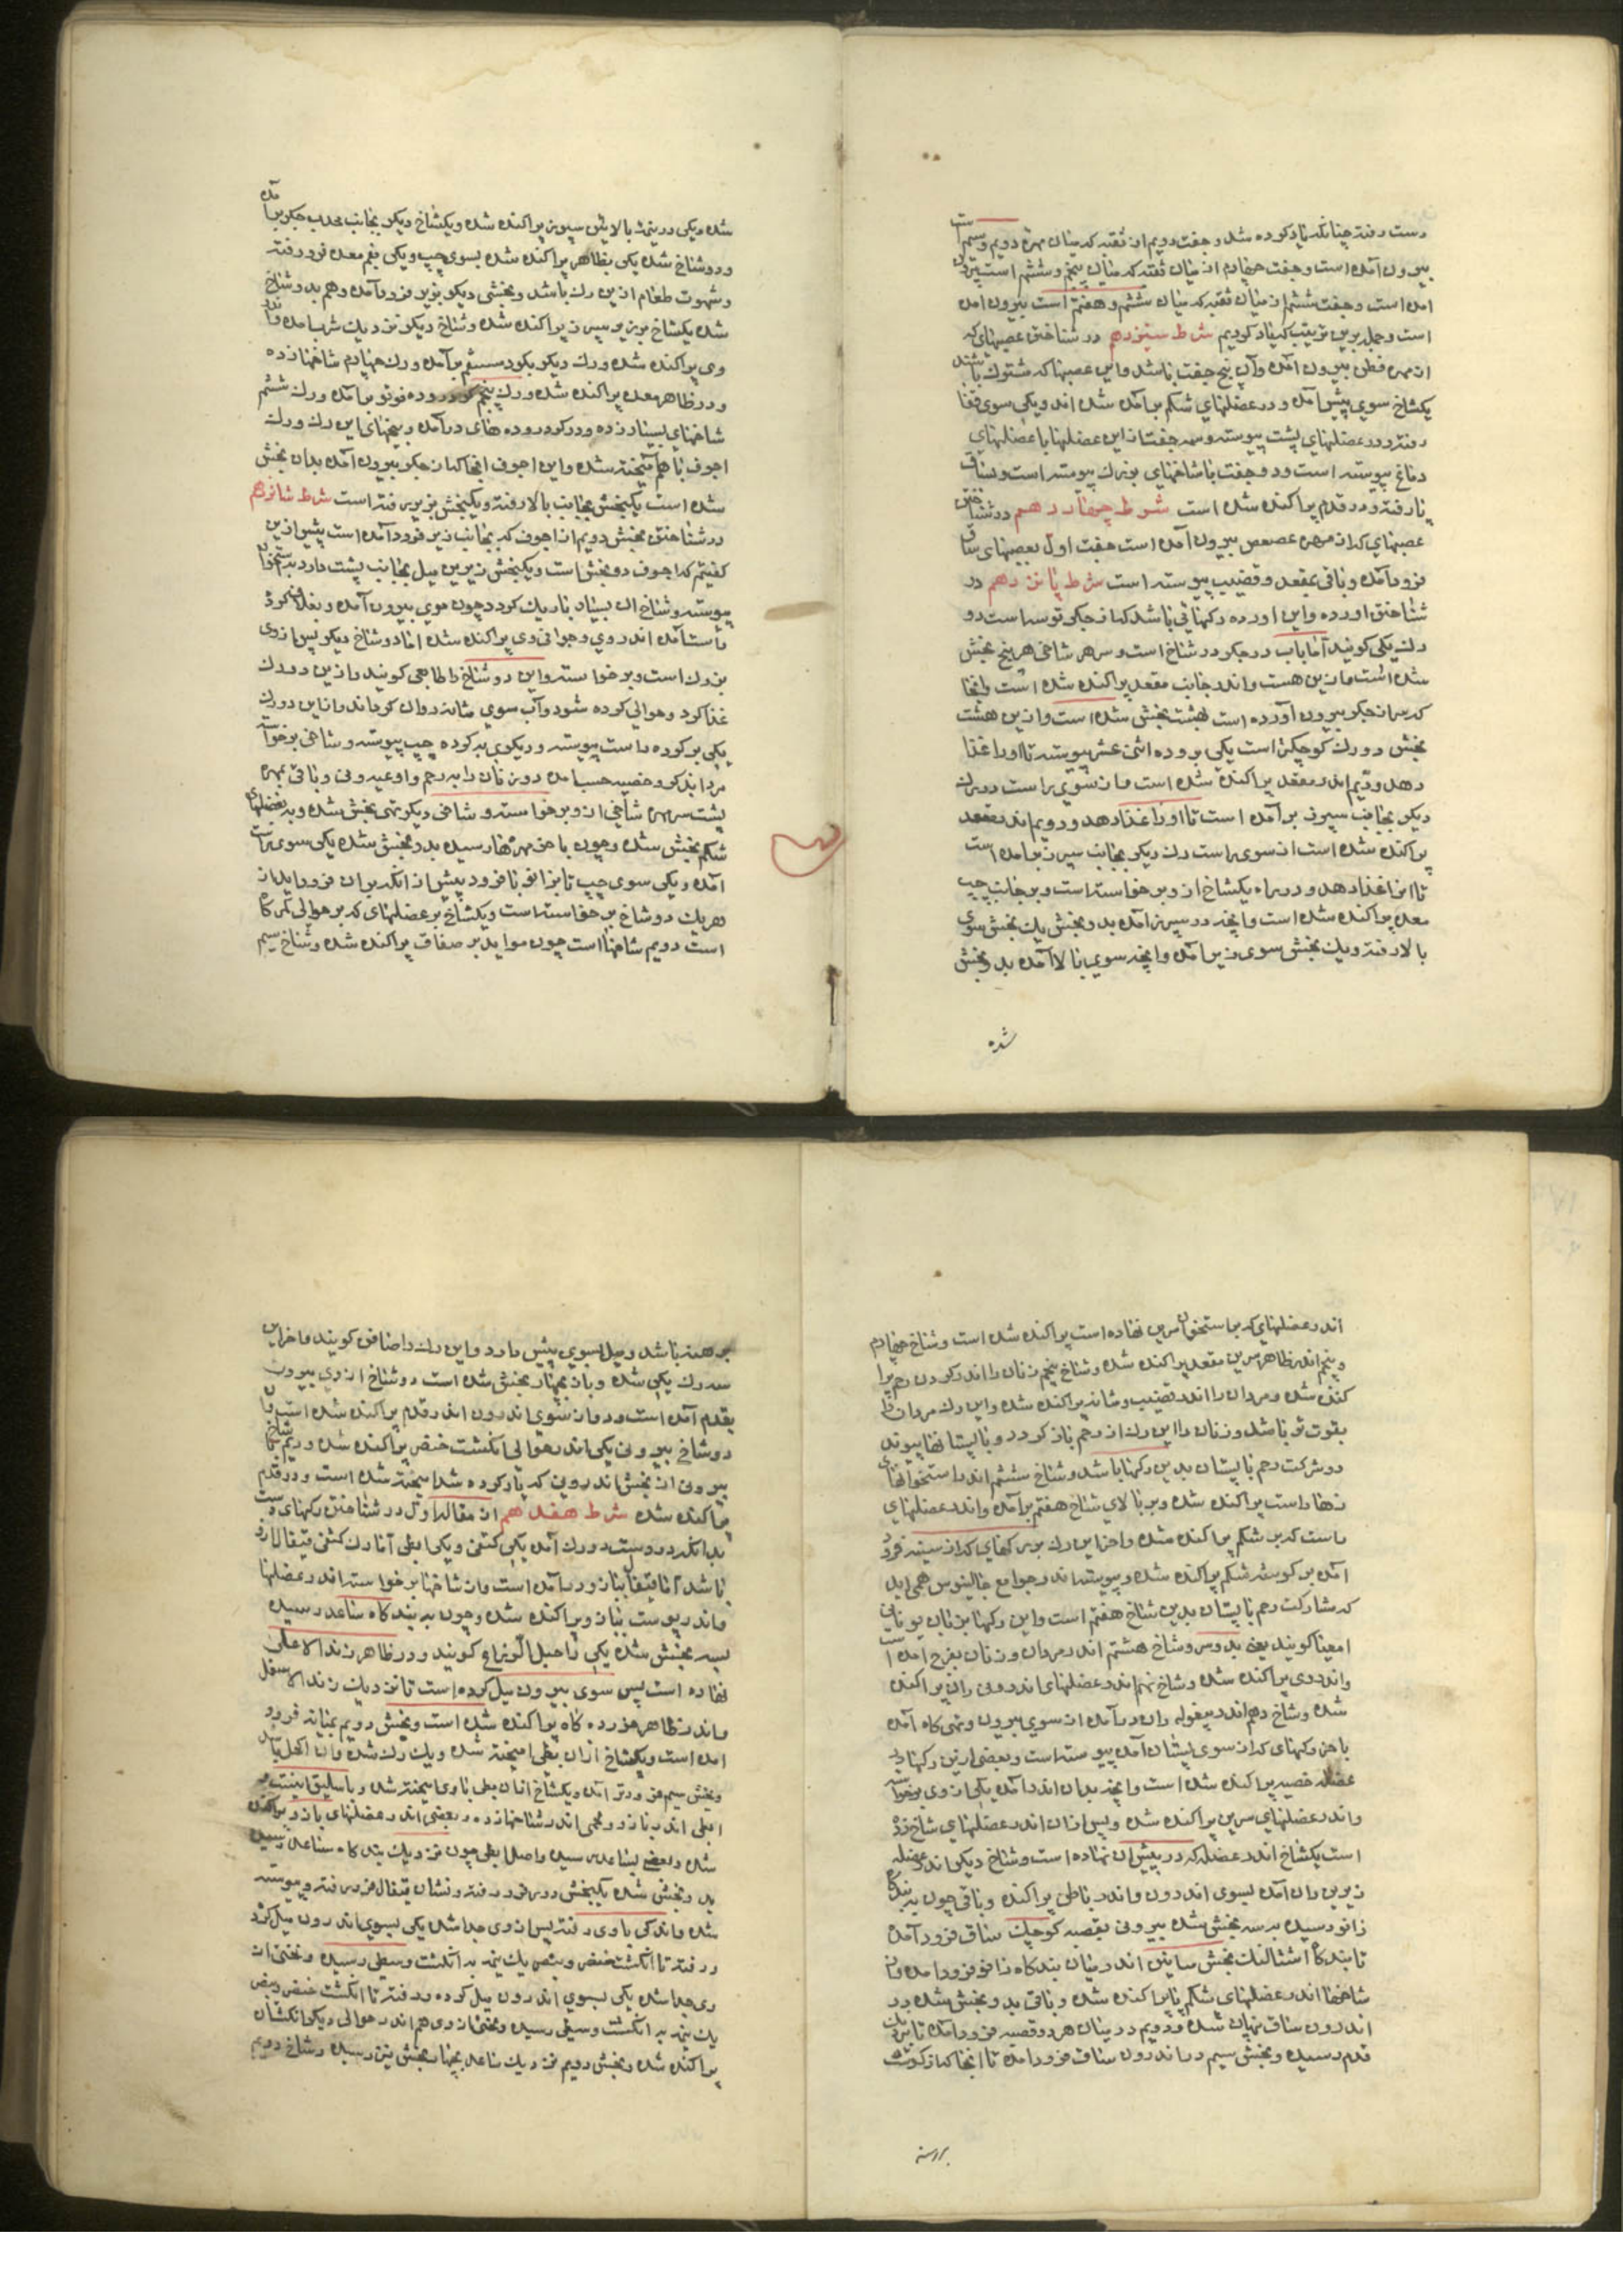 دست رفته چنانکه یاد کرده شد و جفت دویم از ثقبه که میان مهره دویم و سیم است
بیرون آمده است و جفت چهارم از میان ثقبه که میان پنجم و ششم است بیرون
امده است و جفت ششم از میان ثقبه که میان ششم و هفتم است بیرون امده
است و جمله برین ترتیب که یاد کردیم شرط سیزدهم در شناختن عصبهای که
از مهره قطن بیرون آمده وآن پنج جفت باشد واین عصبها که مشترک باشند
یکشاخ سوی پیش آمده و در عضلهای شکم پراکنده شده اند و یکی سوی قفا
رفته و در عضلهای پشت پیوسته و سه جفت از این عضلها با عضلهای
دماغ پیوسته است و دو جفت با شاخهای بزرک پیوسته است و بساق
پا رفته و در قدم پراکنده شده است شرط چهاردهم در شناختن
عصبهای که از مهره عصعص بیرون آمده است جفت اول بعصبهای ساق
فرود آمده و باقی بمقعد و قضیب پیوسته است شرط پانزدهم در
شناختن اورده و این اورده رکهائی باشد که از جکر توسه است دو
رک یکی کویند آما باب در جکر در شاخ است و سر هر شاخی هر پنج بخش
شده است و ازین هست و اندر جانب مقعد پراکنده شده است و انجا
که سر از جکر بیرون آورده است بهشت بخش شده است و ازین هشت
بخش دو رک کوچکتر است یکی بروده اثنی عشر پیوسته تا اورا غذا
دهد و دیم اندر مقعد پراکنده شده است و از سوی راست دو رک
دیکر بجانب سپرز برآمده است تا اورا غذا دهد و دویم اندر مقعد
پراکنده شده است از سوی راست رک دیکر بجانب سپرز برآمده است
تا انرا غذا دهد و در راه یکشاخ از و برخواسته است و بر جانب چپ
معده پراکنده شده است وانچه در سپرز آمده بدو بخش یک بخش سوی
بالا رفته و یک بخش سوی زیر آمده وانچه سوی بالا آمده بدو بخش
شده
شده و یکی در نیمه بالایی سپرز پراکنده شده و یکشاخ دیکر بجانب محدب جکر برآمده
و دو شاخ شده یکی بظاهر پراکنده شده بسوی چپ و یکی بفم معده فرو رفته
و شهوت طعام ازین رک باشد و بخشی دیکر بزیر فرود آمده و هم بدو شاخ
شده یکشاخ بزیر سپرز پراکنده شده و شاخ دیکر نزدیک شرب آمده و اندر
وی پراکنده شده و رک دیکر بکرد مستقیم برآمده و رک چهارم شاخها زده
و در ظاهر معده پراکنده شده و رک پنجم کرد روده قوتو برآمده و رک ششم
شاخهای بسیار زده و در کرد روده های درآمده و بیخهای این رک و رک
اجوف باهم آمیخته شده و این اجوف انجا که از جکر بیرون آمده بدان بخش
شده است یکبخش بجانب بالا رفته و یکبخش بزیر رفته است شرط شانزدهم
در شناختن بخش دویم از اجوف که بجانب زیر فرود آمده است پیش ازین
کفتیم که اجوف دو بخش است و یکبخش زیرین میل بجانب پشت دارد به استخوان
پیوسته و شاخ ان بسیار باریک کرده چون موی بیرون آمده و بغلاف کرده
راست آمده اندر وی و حوالی وی پراکنده شده اما دو شاخ دیکر پس از وی
بزرک است و برخواسته و این دو شاخ را طالعی کویند و ازین دو رک
غذا کرد و حوالی کرده شود و آب سوی مثانه روان کرداند و از این دو رک
یکی بر کرده راست پیوسته و دیکری بر کرده چپ پیوسته و شاخی برخواسته
مردانرا بذکر و خصیه حسب آمده و در زنان را به رحم و اوعیه و نی و باقی بمهره
پشت سر مهره شاخی از و برخواسته و شاخی دیکر بتهی بخش شده و بر عضلهای
شکم بخش شده و چون باخر مهرها رسیده بدو بخش شده یکی سوی راست
آمده و یکی سوی چپ تا بزانو فرود پیش از انکه بر ان فرود اید از
هر یک دو شاخ برخواسته است و یکشاخ بر عضلهای که بر حوالی کمرکاه
است دویم شاخها است چون مو اید بر صفاق پراکنده شده و شاخ سیم
اندر عضلهای که بر استخوان سرین نهاده است پراکنده شده است و شاخ چهارم
و پنجم اندر ظاهر سرین مقعد پراکنده شده و شاخ پنجم زنان را اندر کردن رحم پرا
کنده شده و مردان را اندر قضیب و مثانه پراکنده شده و این رک مردان را
بقوت تر باشد و زنان را این رک از رحم باز کردد و با پستانها پیوندد
و شرکت رحم با پستان بدین رکها باشد و شاخ ششم اندر استخوانهای
زهار راست پراکنده شده و بر بالای شاخ هفتم برآمده و اندر عضلهای
راست که بر شکم پراکنده شده و اخر این رک بر رکهای که از سینه فرود
آمده بر کوشه شکم پراکنده شده و پیوسته اند و جوامع جالینوس همی اید
که مشارکت رحم با پستان بدین شاخ هفتم است و این رکها بزبان یونانی
امعینا کویند یعنی بدوس و شاخ هشتم اندر مردان و زنان بفرج امده است
و اندر وی پراکنده شده و شاخ نهم اندر عضلهای اندرونی ران پراکنده
شده و شاخ دهم اندر بیغوله ران درآمده از سوی بیرون و تهی کاه آمده
با خر رکهای که از سوی پستان آمده پیوسته است و بعضی ازین رکها در
عضله خصیه پراکنده شده است وانچه بدان اندر آمده یکی از وی برخواسته
و اندر عضلهای سرین پراکنده شده و پس ازان اندر عضلهای شاخ زده
است یکشاخ اندر عضله که در پیش ان نهاده است و شاخ دیکر اندر عضله
زیرین ران آمده بسوی اندرون و اندر باطن پراکنده و باقی چون به بندکاه
زانو رسیده به سه بخش شده بیرونی بقصبه کوچک ساق فرود آمده
تا بندکاه اشتالنک بخش میانین اندر میان بندکاه زانو فرود امده و از
شاخها اندر عضلهای شکم پا پراکنده شده و باقی بدو بخش شده در
اندرون ساق نهان شده و دویم در میان هر دو قصبه فرود آمده تا نزدیک
قدم رسیده و بخش سیم در اندرون ساق فرود آمده تا انجا که از کوشت
برهنه
برهنه باشد و میل بسوی پیش دارد و این رک را صافن کویند و اخر این
سه رک یکی شده و باز بچهار بخش شده است دو شاخ از وی بیرون
بقدم آمده است و دو از سوی اندرون اندر قدم پراکنده شده است و از
دو شاخ بیرونی یکی اندر حوالی انکشت خنصر پراکنده شده و دیم با شاخ
بیرونی از بخش اندرونی که یاد کرده شد امیخته شده است و در قدم
پراکنده شده شرط هفدهم از مقاله اول در شناختن رکهای دست
بدانکه در دوست دو رک آمده یکی کتفی و یکی ابطی آما رک کتفی قیفال ازو
باشد اما قیفال بباز و درآمده است و از شاخها برخواسته اندر عضلها
و اندر پوست بباز و پراکنده شده و چون به بندکاه ساعد رسیده
بسه بخش شده یکی را حبل الذراع کویند و در ظاهر زند الاعلی
نهاده است پس سوی بیرون میل کرده است تا نزدیک زند الاسفل
و اندر ظاهر خورده کاه پراکنده شده است و بخش دویم بمیانه فرود
امده است و یکشاخ ازان بطی امیخته شده و یک رک شده و ان اکحل باشد
و بخش سیم فرودتر آمده و یکشاخ ازان بطی باوی امیخته شد و باسلیق اینست و
ابطی اندر بازو و همی اندر شاخها زده و بعضی اندر عضلهای بازو پراکنده
شده و بعضی بساعد رسیده و اصل ابطی چون نزدیک بندکاه ساعد رسیده
بدو بخش شده یکبخش دور فرو رفته و نشان قیفال فرو رفته و پیوسته
شده و اندکی باوی رفته پس از وی جدا شده یکی بسوی اندرون میل کرده
و رفته تا انکشت خنصر و بنصر یک نیمه به انکشت وسطی رسیده و بخش از
وی جدا شده یکی بسوی اندرون میل کرده و رفته تا انکشت خنصر و بنصر
یک نیمه به انکشت وسطی رسیده و بخش از وی هم اندر حوالی دیکر انکشتان
پراکنده شده و بخش دویم نزدیک ساعد بچهار بخش یتن رسیده و شاخ دویم